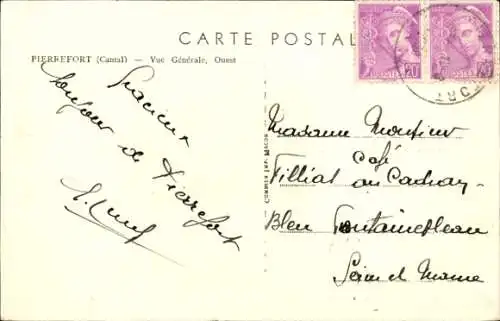 CARTE POSTAL
PIERREFORT (Cantal) — Vue Générale, Ouest
bonjour de Pierrefort
Madame Monsieur
Café
Filliat au Cadran
Bleu Fontainebleau
Seine et Marne
20
20
ORT